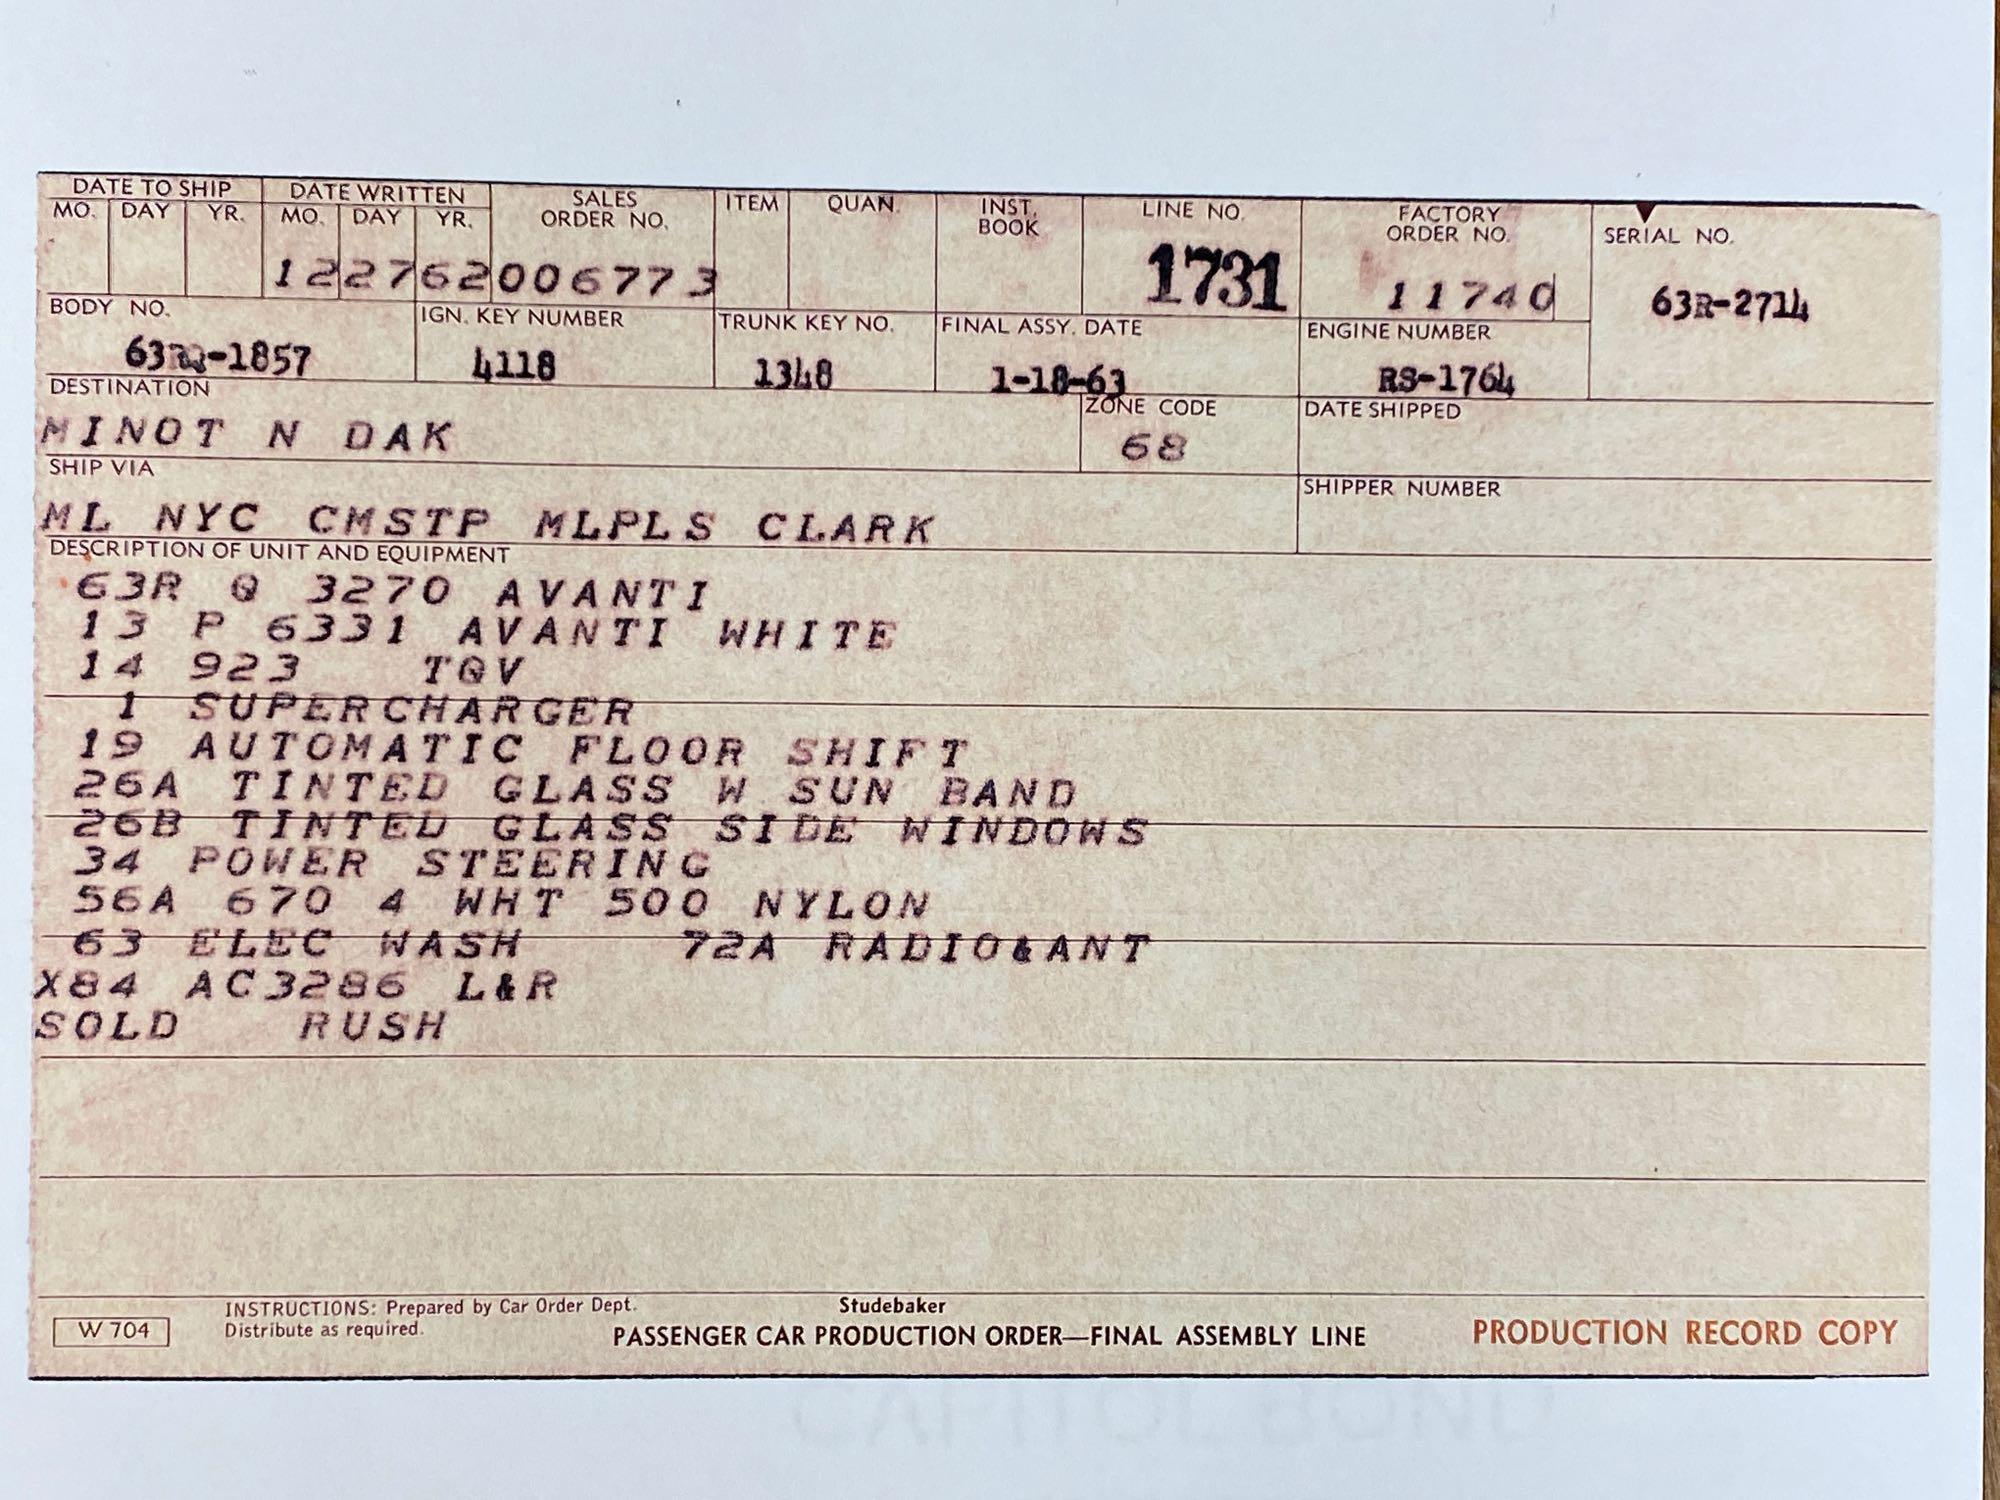 DATE TO SHIP DATE WRITTEN SALES ORDER NO. ITEM QUAN. INST. BOOK LINE NO. FACTORY ORDER NO. SERIAL NO.
MO. DAY YR. MO. DAY YR.
122762006773 1731 11740 63R-2714
BODY NO. IGN. KEY NUMBER TRUNK KEY NO. FINAL ASSY. DATE ENGINE NUMBER
4118 1348 1-18-63 RS-1764
DESTINATION ZONE CODE DATE SHIPPED
MINOT N DAK 68
SHIP VIA SHIPPER NUMBER
ML NYC CMSTP MLPLS CLARK
DESCRIPTION OF UNIT AND EQUIPMENT
63R Q 3270 AVANTI
13 P 6331 AVANTI WHITE
14 923 TQV
1 SUPERCHARGER
19 AUTOMATIC FLOOR SHIFT
26A TINTED GLASS W SUN BAND
26B TINTED GLASS SIDE WINDOWS
34 POWER STEERING
56A 670 4 WHT 500 NYLON
63 ELEC WASH 72A RADIO&ANT
X84 AC3286 L&R
SOLD RUSH
INSTRUCTIONS: Prepared by Car Order Dept.
Distribute as required.
W 704
Studebaker
PASSENGER CAR PRODUCTION ORDER—FINAL ASSEMBLY LINE
PRODUCTION RECORD COPY